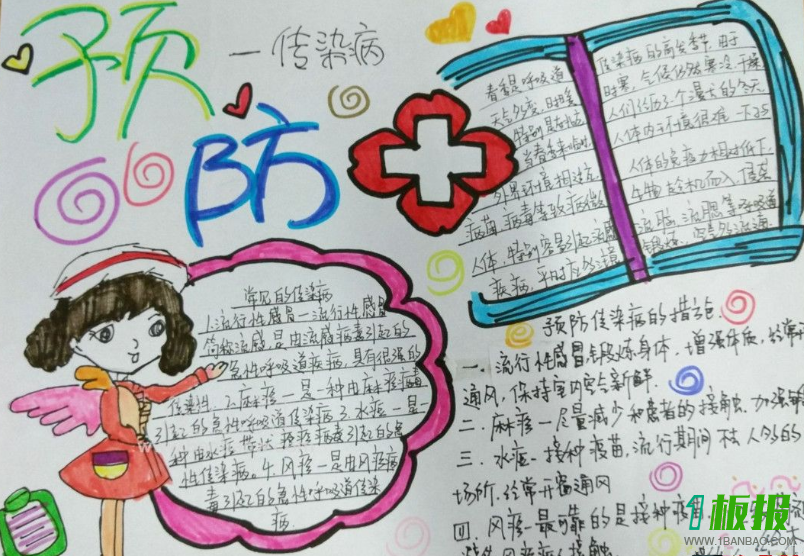 预防
一传染病
春季是呼吸道
传染病的高发季节.由于
天气多变,
时寒,气候仍然寒冷、干燥
人们经历了一个漫长的冬天
当春季来临时
人体内环境很难一下子
外界环境相适应
人体的免疫力相对低下
病菌、病毒等致病微
生物趁机而入
人体.特别容易引起流感
疾病,平时应
常见的传染病
1.流行性感冒—流行性感冒
简称流感是由流感病毒引起的
急性呼吸道疾病,具有很强的
传染性.2.麻疹—是一种由麻疹病毒
引起的急性呼吸道传染病3.水痘—是一
种由水痘带状疱疹病毒引起的急
性传染病。4.风疹—是由风疹病
毒引起的急性呼吸道传染
病
预防传染病的措施
一.流行性感冒锻炼身体,增强体质,经常开
通风,保持室内空气新鲜.
二.麻疹—尽量减少和患者的接触.加强锻
三.水痘—接种疫苗,流行期间不去人多的
场所.经常开窗通风
四.风疹—最可靠的是接种疫苗
1板报
WWW.1BANBAO.COM